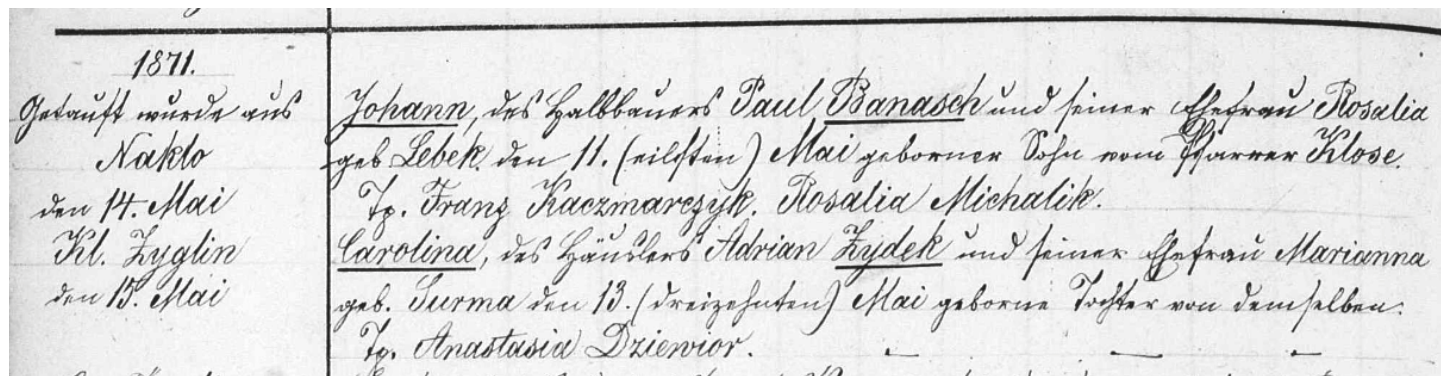 1871.
Getauft wurde aus
Nakło
den 14. Mai
Kl. Zyglin
den 15. Mai
Johann, des Halbbauers Paul Banasch und seiner Ehefrau Rosalia
geb Lebek. den 11. (eilften) Mai geborner Sohn vom Pfarrer Klose.
Tp. Franz Kaczmarczyk. Rosalia Michalik.
Carolina, des Häuslers Adrian Zydek und seiner Ehefrau Marianna
geb. Surma den 13. (dreizehnten) Mai geborne Tochter von demselben.
Tp. Anastasia Dziewior.